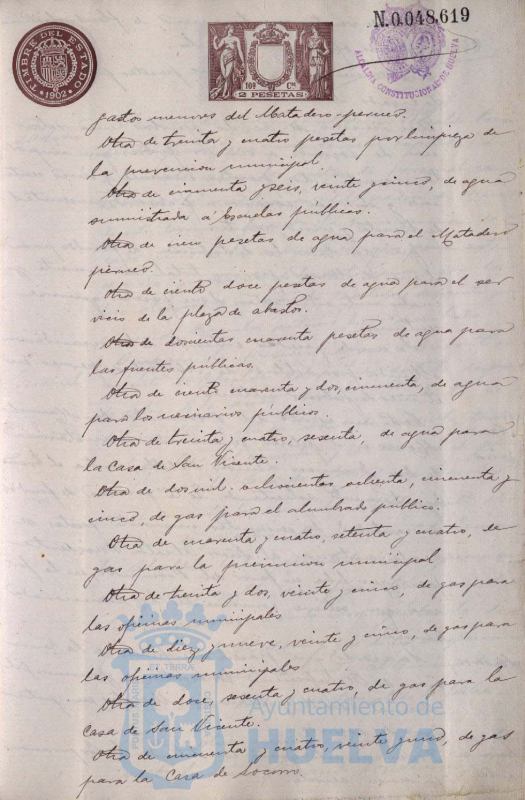 TIMBRE DEL ESTADO
1902
10ª Cs.
2 PESETAS
N.0.048,619
ALCALDIA CONSTITUCIONAL DE HUELVA
gastos menores del Matadero
Otra de treinta y cuatro pesetas por limpieza de
la prevencion municipal.
Otra de cincuenta y seis, veinte y cinco, de agua
suministrada á Escuelas públicas.
Otra de cien pesetas de agua para el Matadero
Otra de ciento doce pesetas de agua para el ser
vicio de la plaza de abastos.
Otra de doscientas cuarenta pesetas de agua para
las fuentes públicas.
Otra de ciento cuarenta y dos, cincuenta, de agua
para los urinarios publicos.
Otra de treinta y cuatro, sesenta, de agua para
la Casa de San Vicente.
Otra de dos mil ochocientas ochenta, cincuenta y
cinco, de gas para el alumbrado público.
Otra de cuarenta y cuatro, setenta y cuatro, de
gas para la prevencion municipal
Otra de treinta y dos, veinte y cinco, de gas para
las oficinas municipales
Otra de diez y nueve, veinte y cinco, de gas para
las oficinas municipales
Otra de doce, sesenta y cuatro, de gas para la
Casa de San Vicente.
Otra de cincuenta y cuatro, veinte y una, de gas
para la Casa de Socorro.
Ayuntamiento de
HUELVA